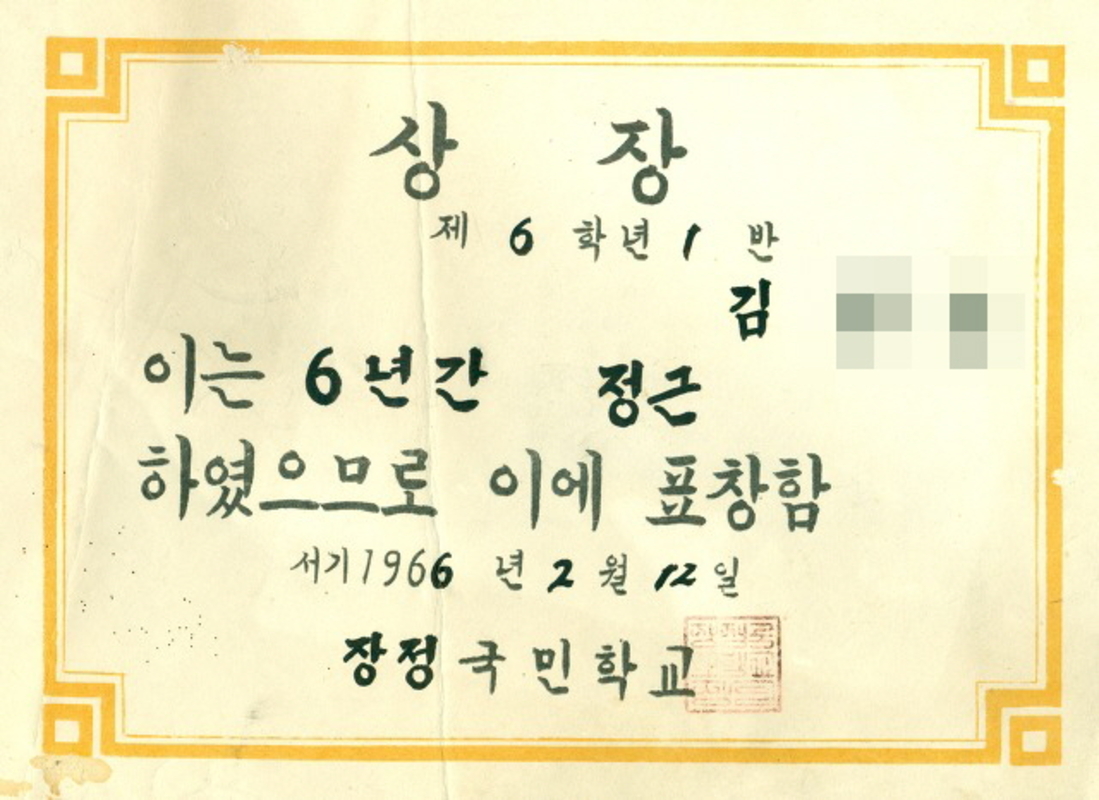 상 장
제 6 학년 1 반
김
이는 6년간 정근
하였으므로 이에 표창함
서기 1966 년 2 월 12 일
장정국민학교